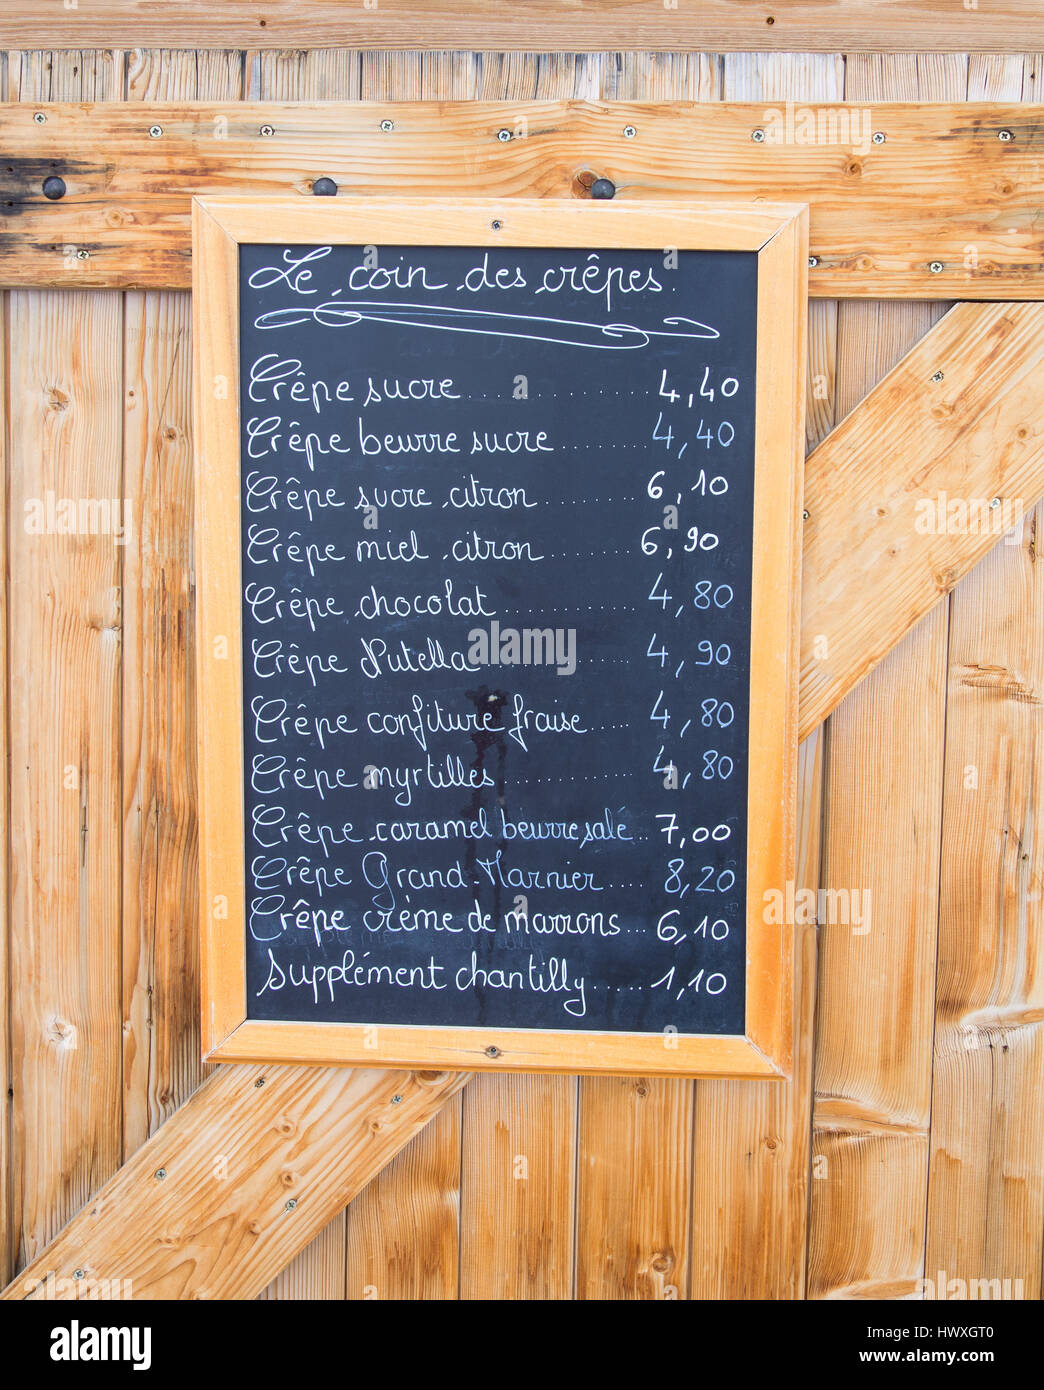 Le coin des crêpes.
Crêpe sucre.................. 4,40
Crêpe beurre sucre......... 4,40
Crêpe sucre citron.......... 6,10
Crêpe miel citron......... 6,90
Crêpe chocolat............. 4,80
Crêpe Nutella............... 4,90
Crêpe confiture fraise..... 4,80
Crêpe myrtilles............. 4,80
Crêpe caramel beurre salé.. 7,00
Crêpe Grand-Marnier.... 8,20
Crêpe crème de marrons... 6,10
Supplément chantilly...... 1,10
alamy stock photo
alamy
HWXGT0
www.alamy.com